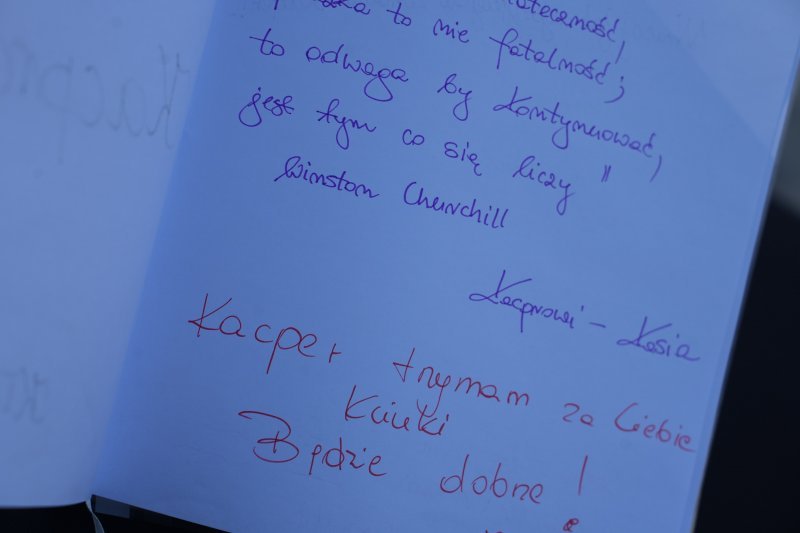 to nie fatalność;
to odwaga by kontynuować,
jest tym co się liczy"
Winston Churchill
Kacprowi - Kasia
Kacper trzymam za Ciebie
Kciuki
Będzie dobrze!